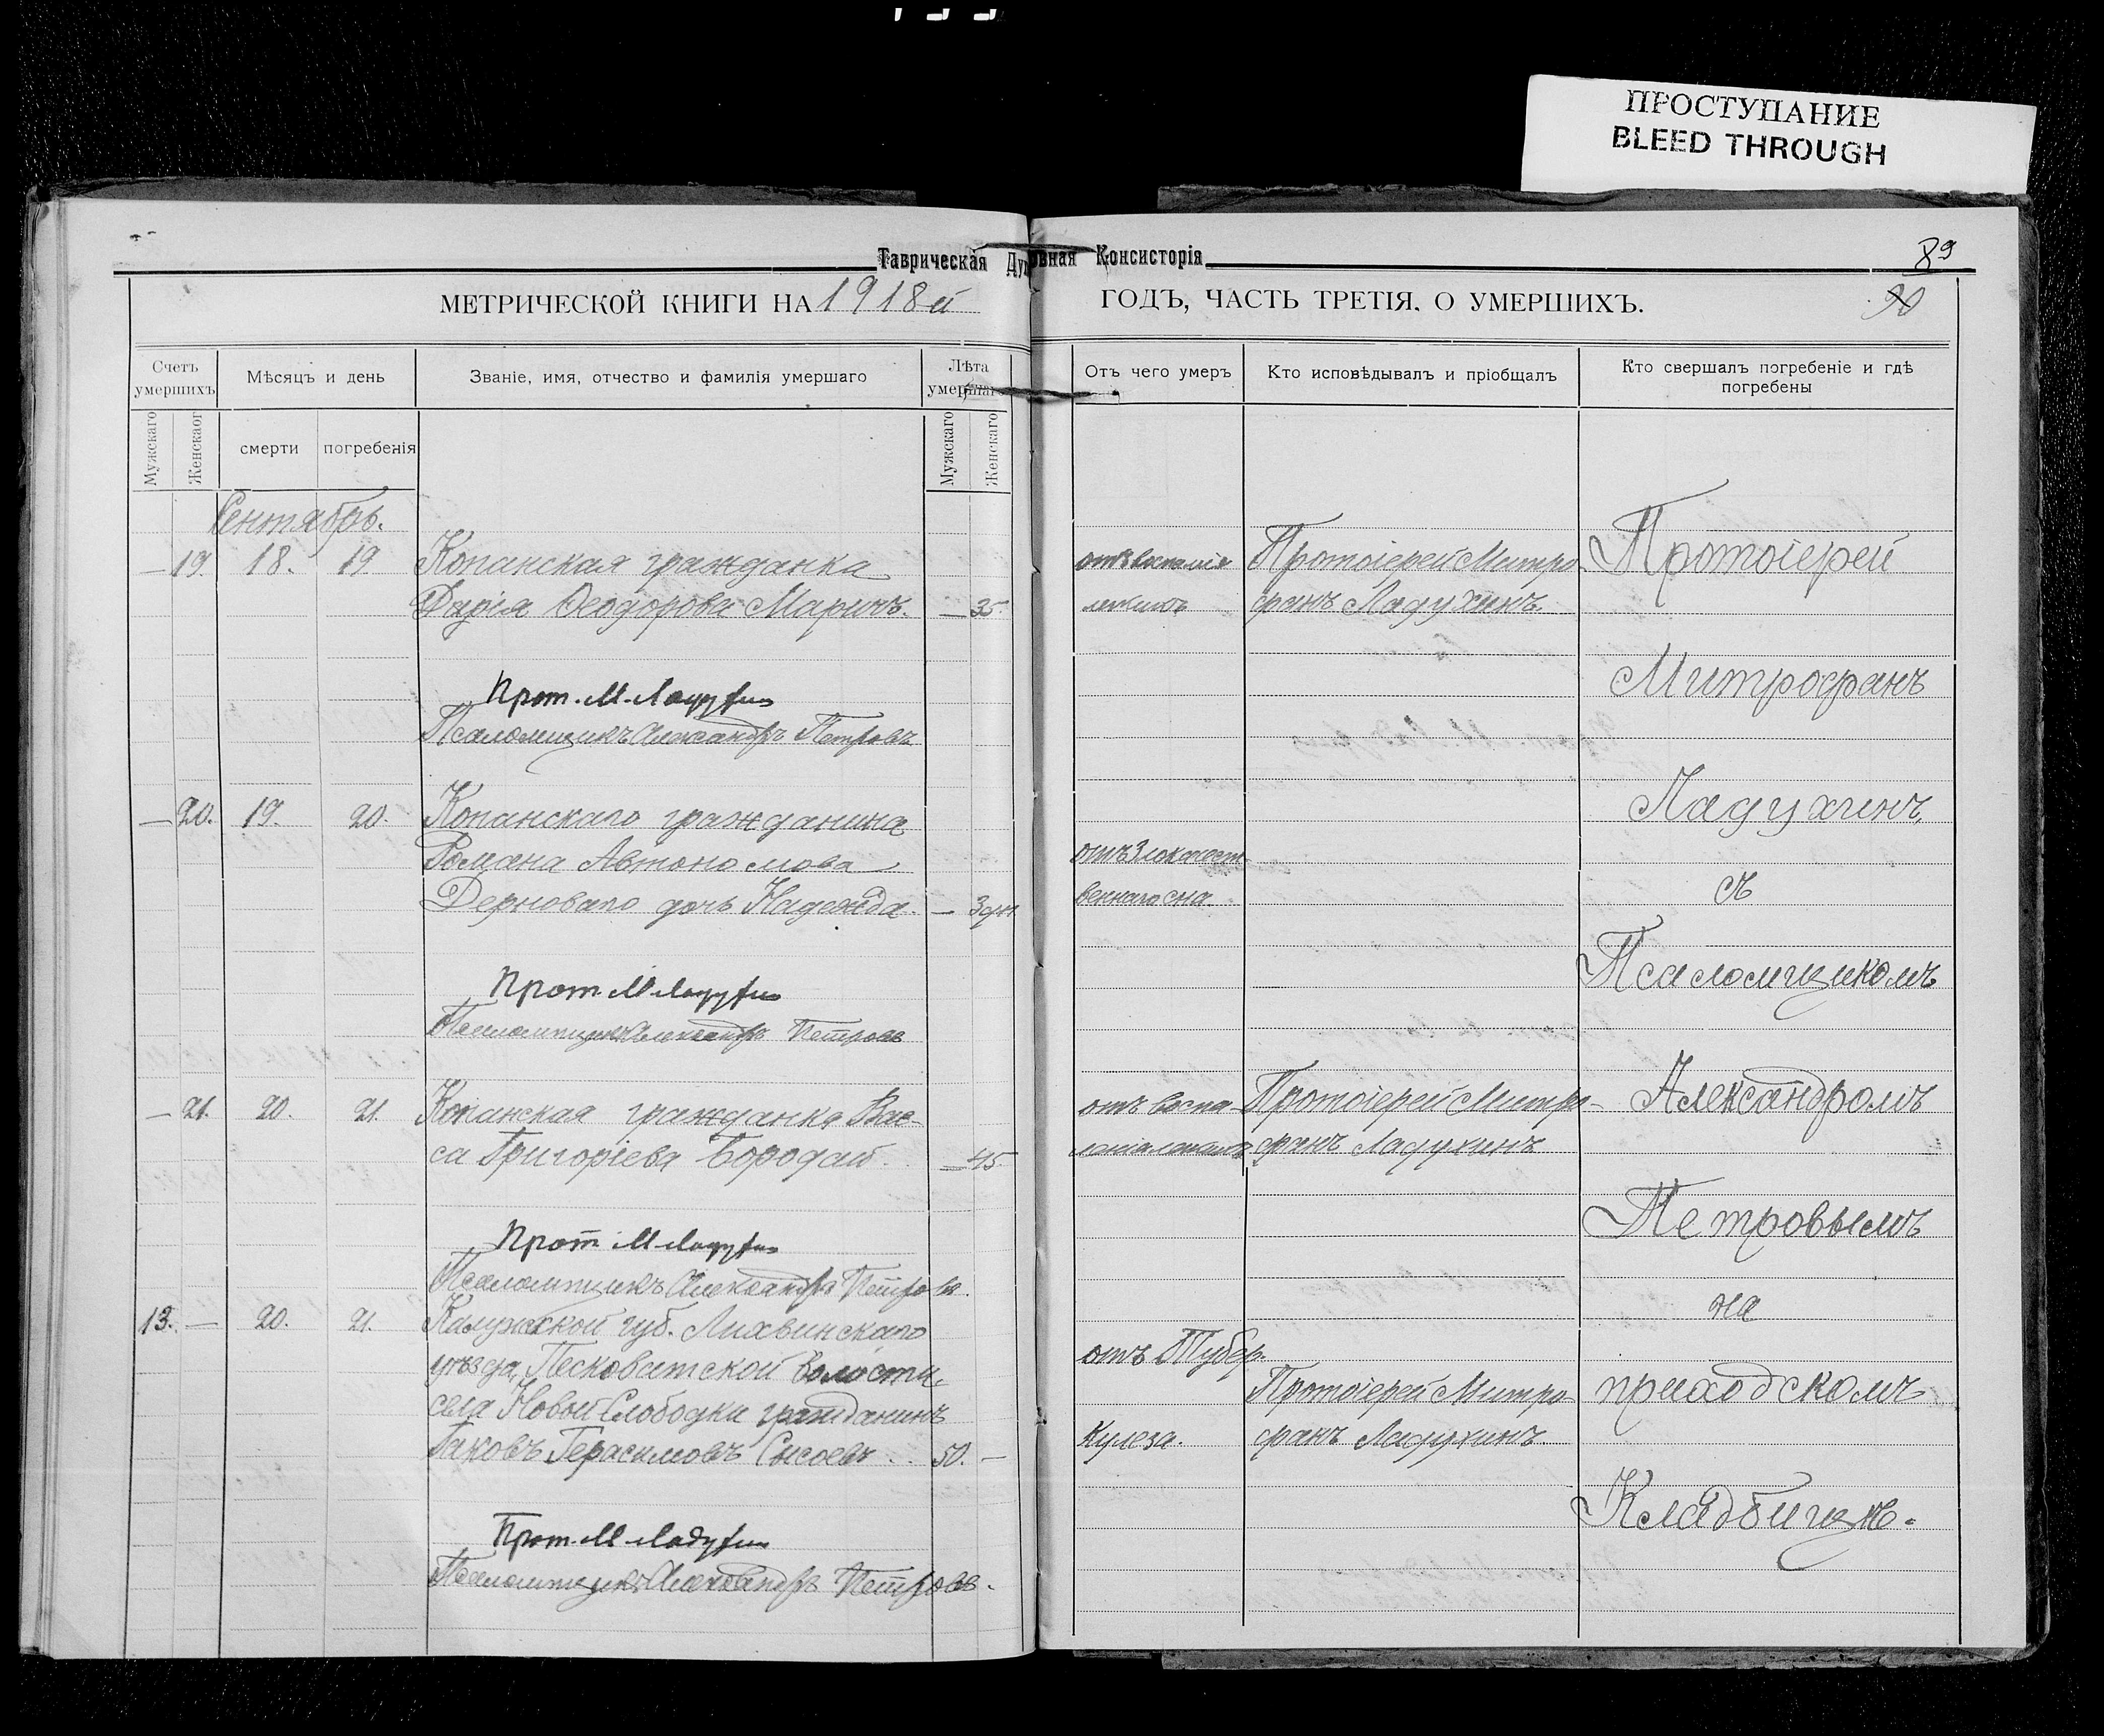 ПРОСТУПАНИЕ
BLEED THROUGH
Таврическая Духовная Консисторія
89
90
МЕТРИЧЕСКОЙ КНИГИ НА 1918й
ГОДЪ, ЧАСТЬ ТРЕТІЯ. О УМЕРШИХЪ.
Счетъ умершихъ
Мѣсяцъ и день
Званіе, имя, отчество и фамилія умершаго
Лѣта умершаго
Мужскаго
Женскаго
смерти
погребенія
Мужскаго
Женскаго
Сентябрь.
— 19. 18. 19 Копанская гражданка
Дарія Ѳеодорова Маричъ. — 35.
Прот. М. Ладухин
Псаломщикъ Александръ Петровъ
— 20. 19. 20. Копанскаго гражданина
Романа Автономова
Дерноваго дочь Надежда. — 3 дн.
Прот. М Ладухин
Псаломщикъ Александръ Петровъ
— 21. 20. 21. Копанская гражданка Вас-
са Григоріева Бородай. — 45.
Прот М Ладухин
Псаломщикъ Александръ Петровъ.
13. — 20. 21. Калужской губ. Лихвинскаго
уѣзда, Песковатской волости,
села Новой Слободки гражданинъ
Іаковъ Герасимовъ Сысоевъ. 50. —
Прот. М Ладухин
Псаломщикъ Александръ Петровъ.
Отъ чего умеръ
Кто исповѣдывалъ и пріобщалъ
Кто свершалъ погребеніе и гдѣ
погребены
Протоіерей Митро-
фанъ Ладухинъ.
отъ Злокачест-
веннаго сна.
отъ воспа-
ленія легкихъ
Протоіерей Митро-
фанъ Ладухинъ
отъ Тубер-
кулеза.
Протоіерей Митро
фанъ Ладухинъ.
Протоіерей
Митрофанъ
Ладухинъ,
съ
Псаломщикомъ
Александромъ
Петровымъ
на
приходскомъ
Кладбищѣ.